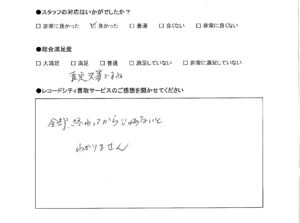 ●スタッフの対応はいかがでしたか？
□ 非常に良かった ☑ 良かった □ 普通 □ 良くない □ 非常に良くない
●総合満足度
□ 大満足 □ 満足 □ 普通 □ 満足していない □ 非常に満足していない
査定次第ですね
●レコードシティ買取サービスのご感想を聞かせてください
全部、終わってからじゃないと
わかりません